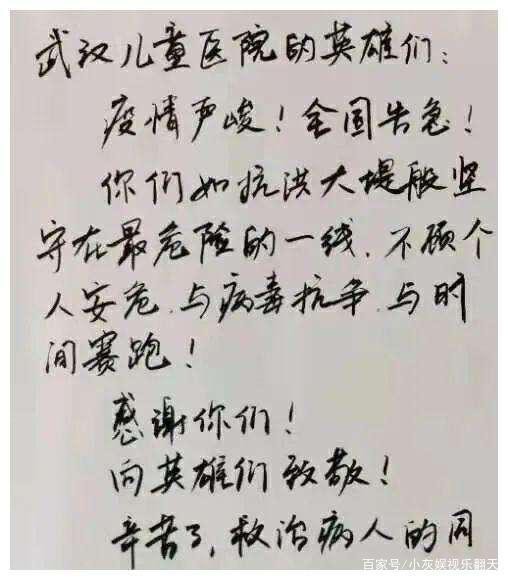 武汉儿童医院的英雄们:
疫情严峻!全国告急!
你们如抗洪大堤般坚
守在最危险的一线,不顾个
人安危,与病毒抗争,与时
间赛跑!
感谢你们!
向英雄们致敬!
辛苦了,救治病人的同
百家号/小灰娱视乐翻天